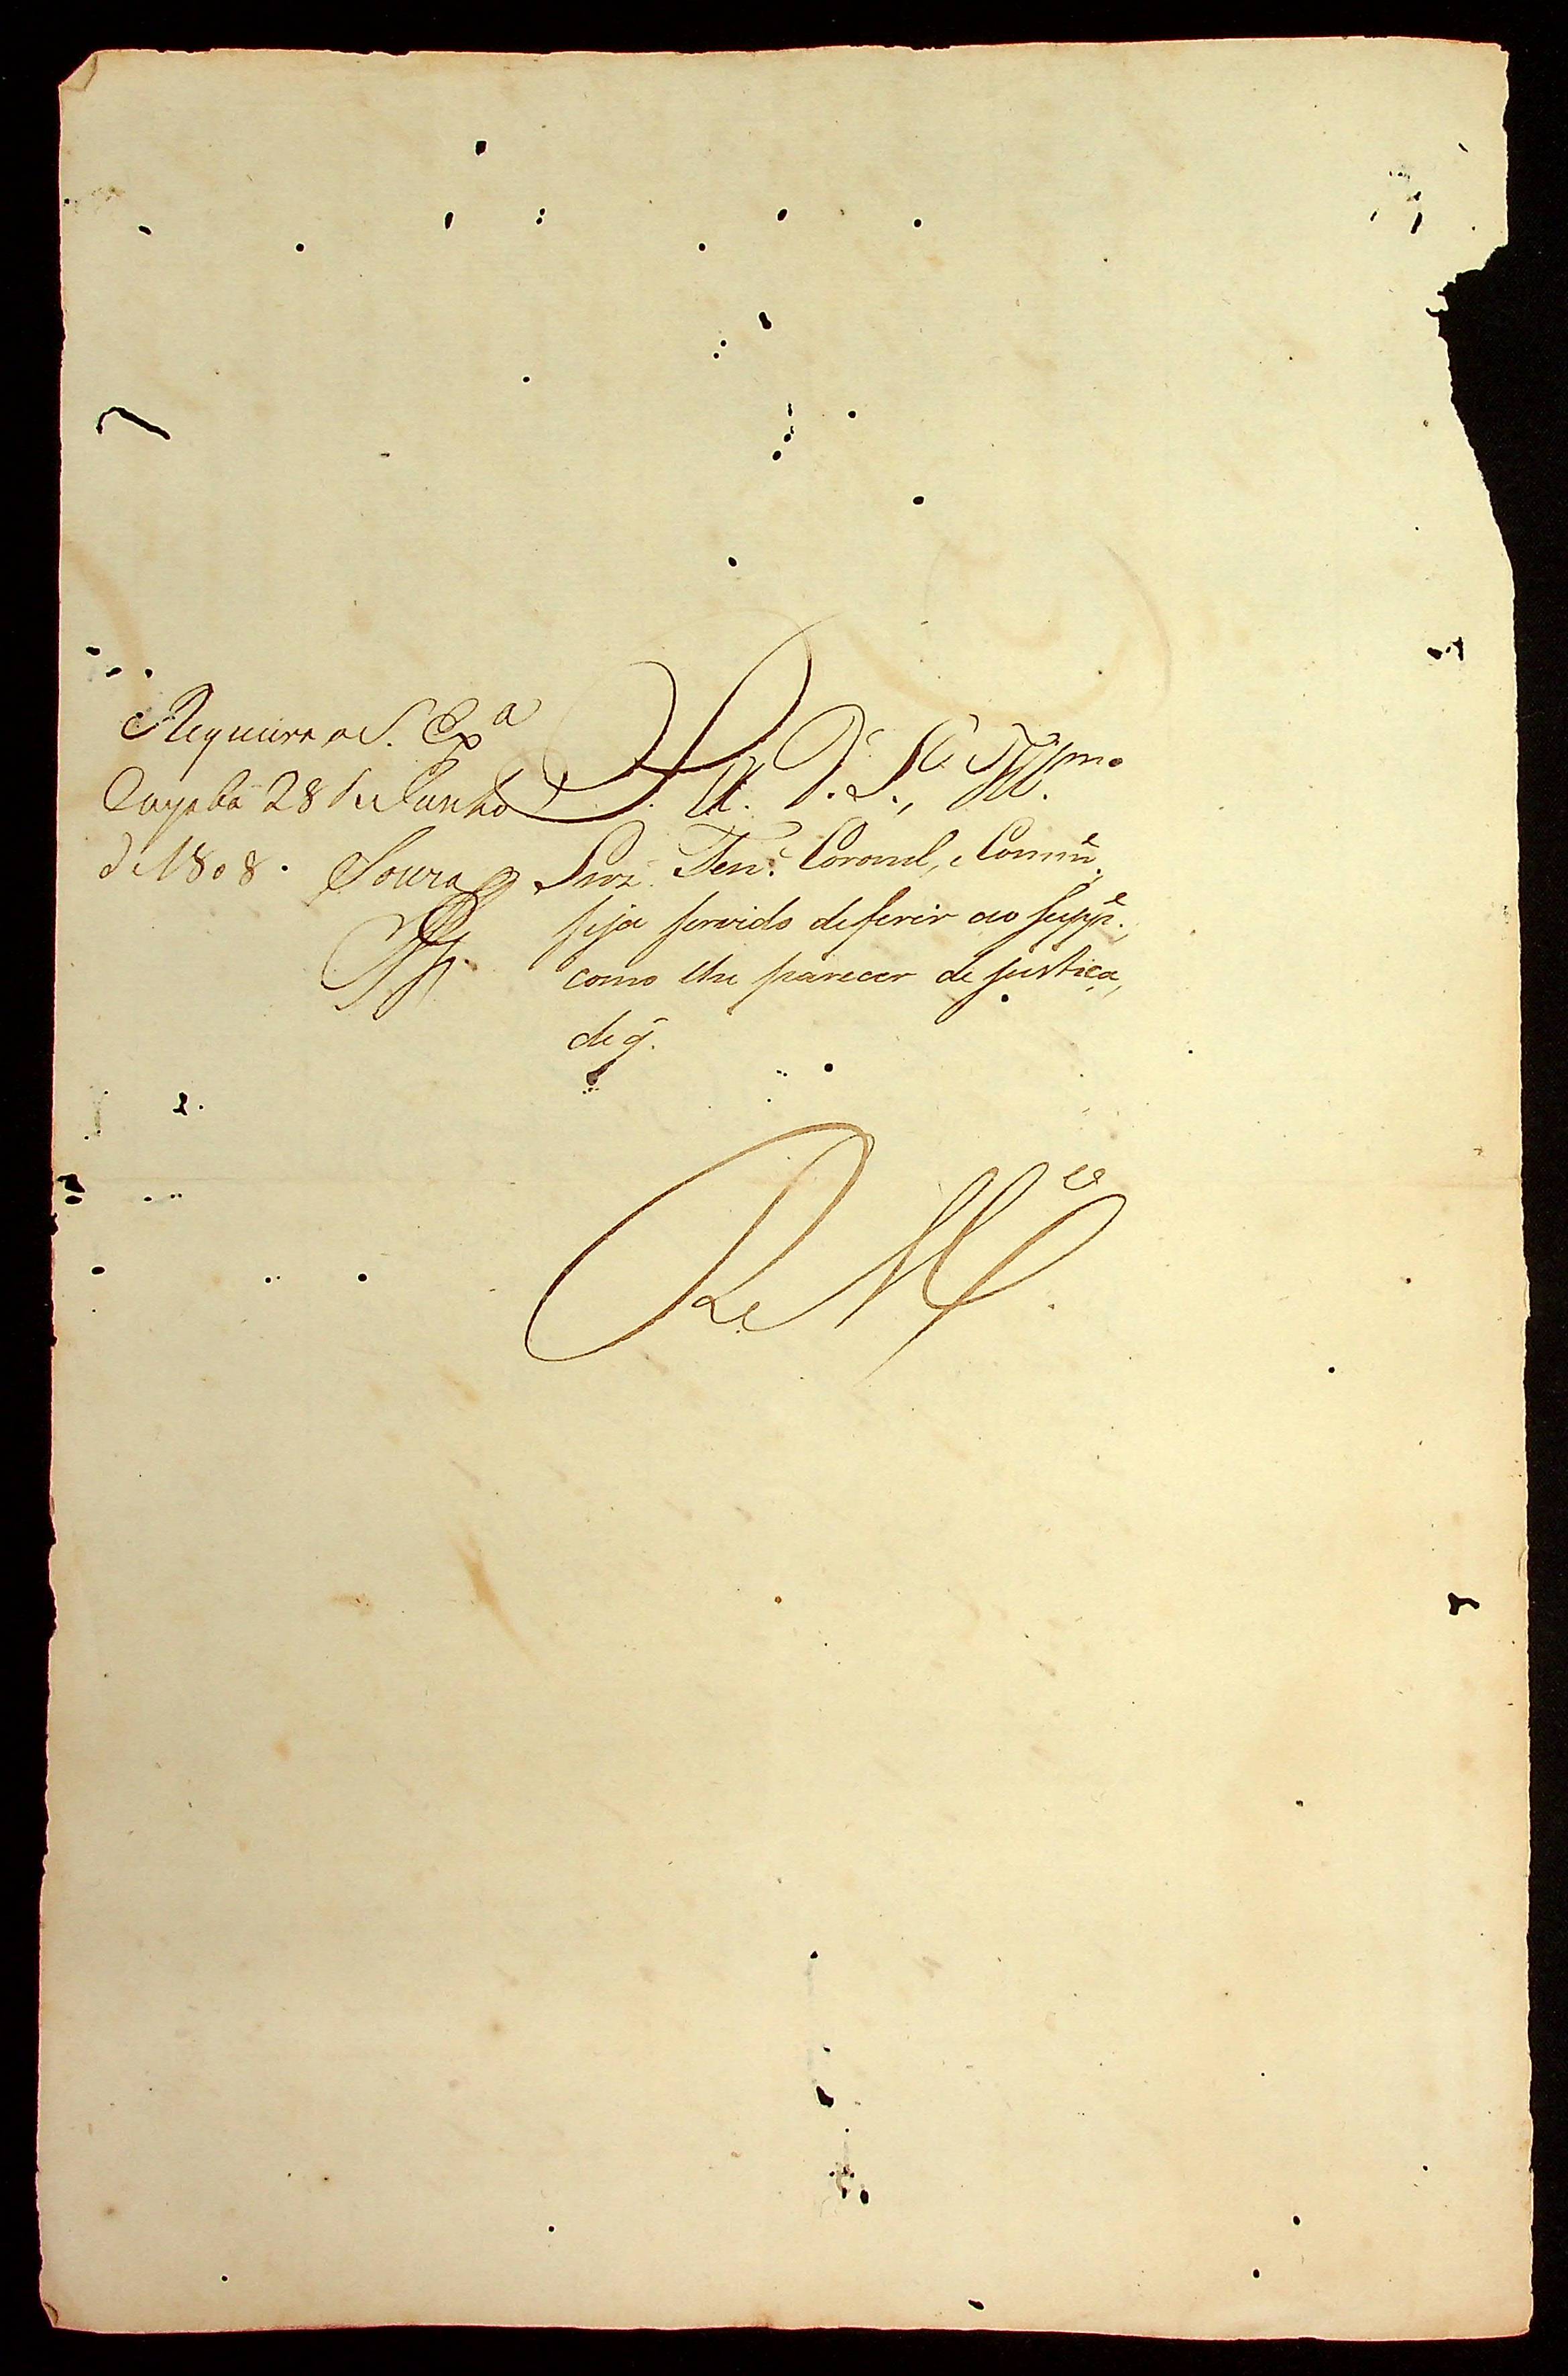 Requeira a S. Exª
Cuyabá 28 de Junho
de 1808. Souza
P. a V. Sª. Illmo
Snr. Ten.e Coronel, e Comm.e
seja servido deferir ao Supp.e,
como lhe parecer de justiça,
de q.
R. M.ce